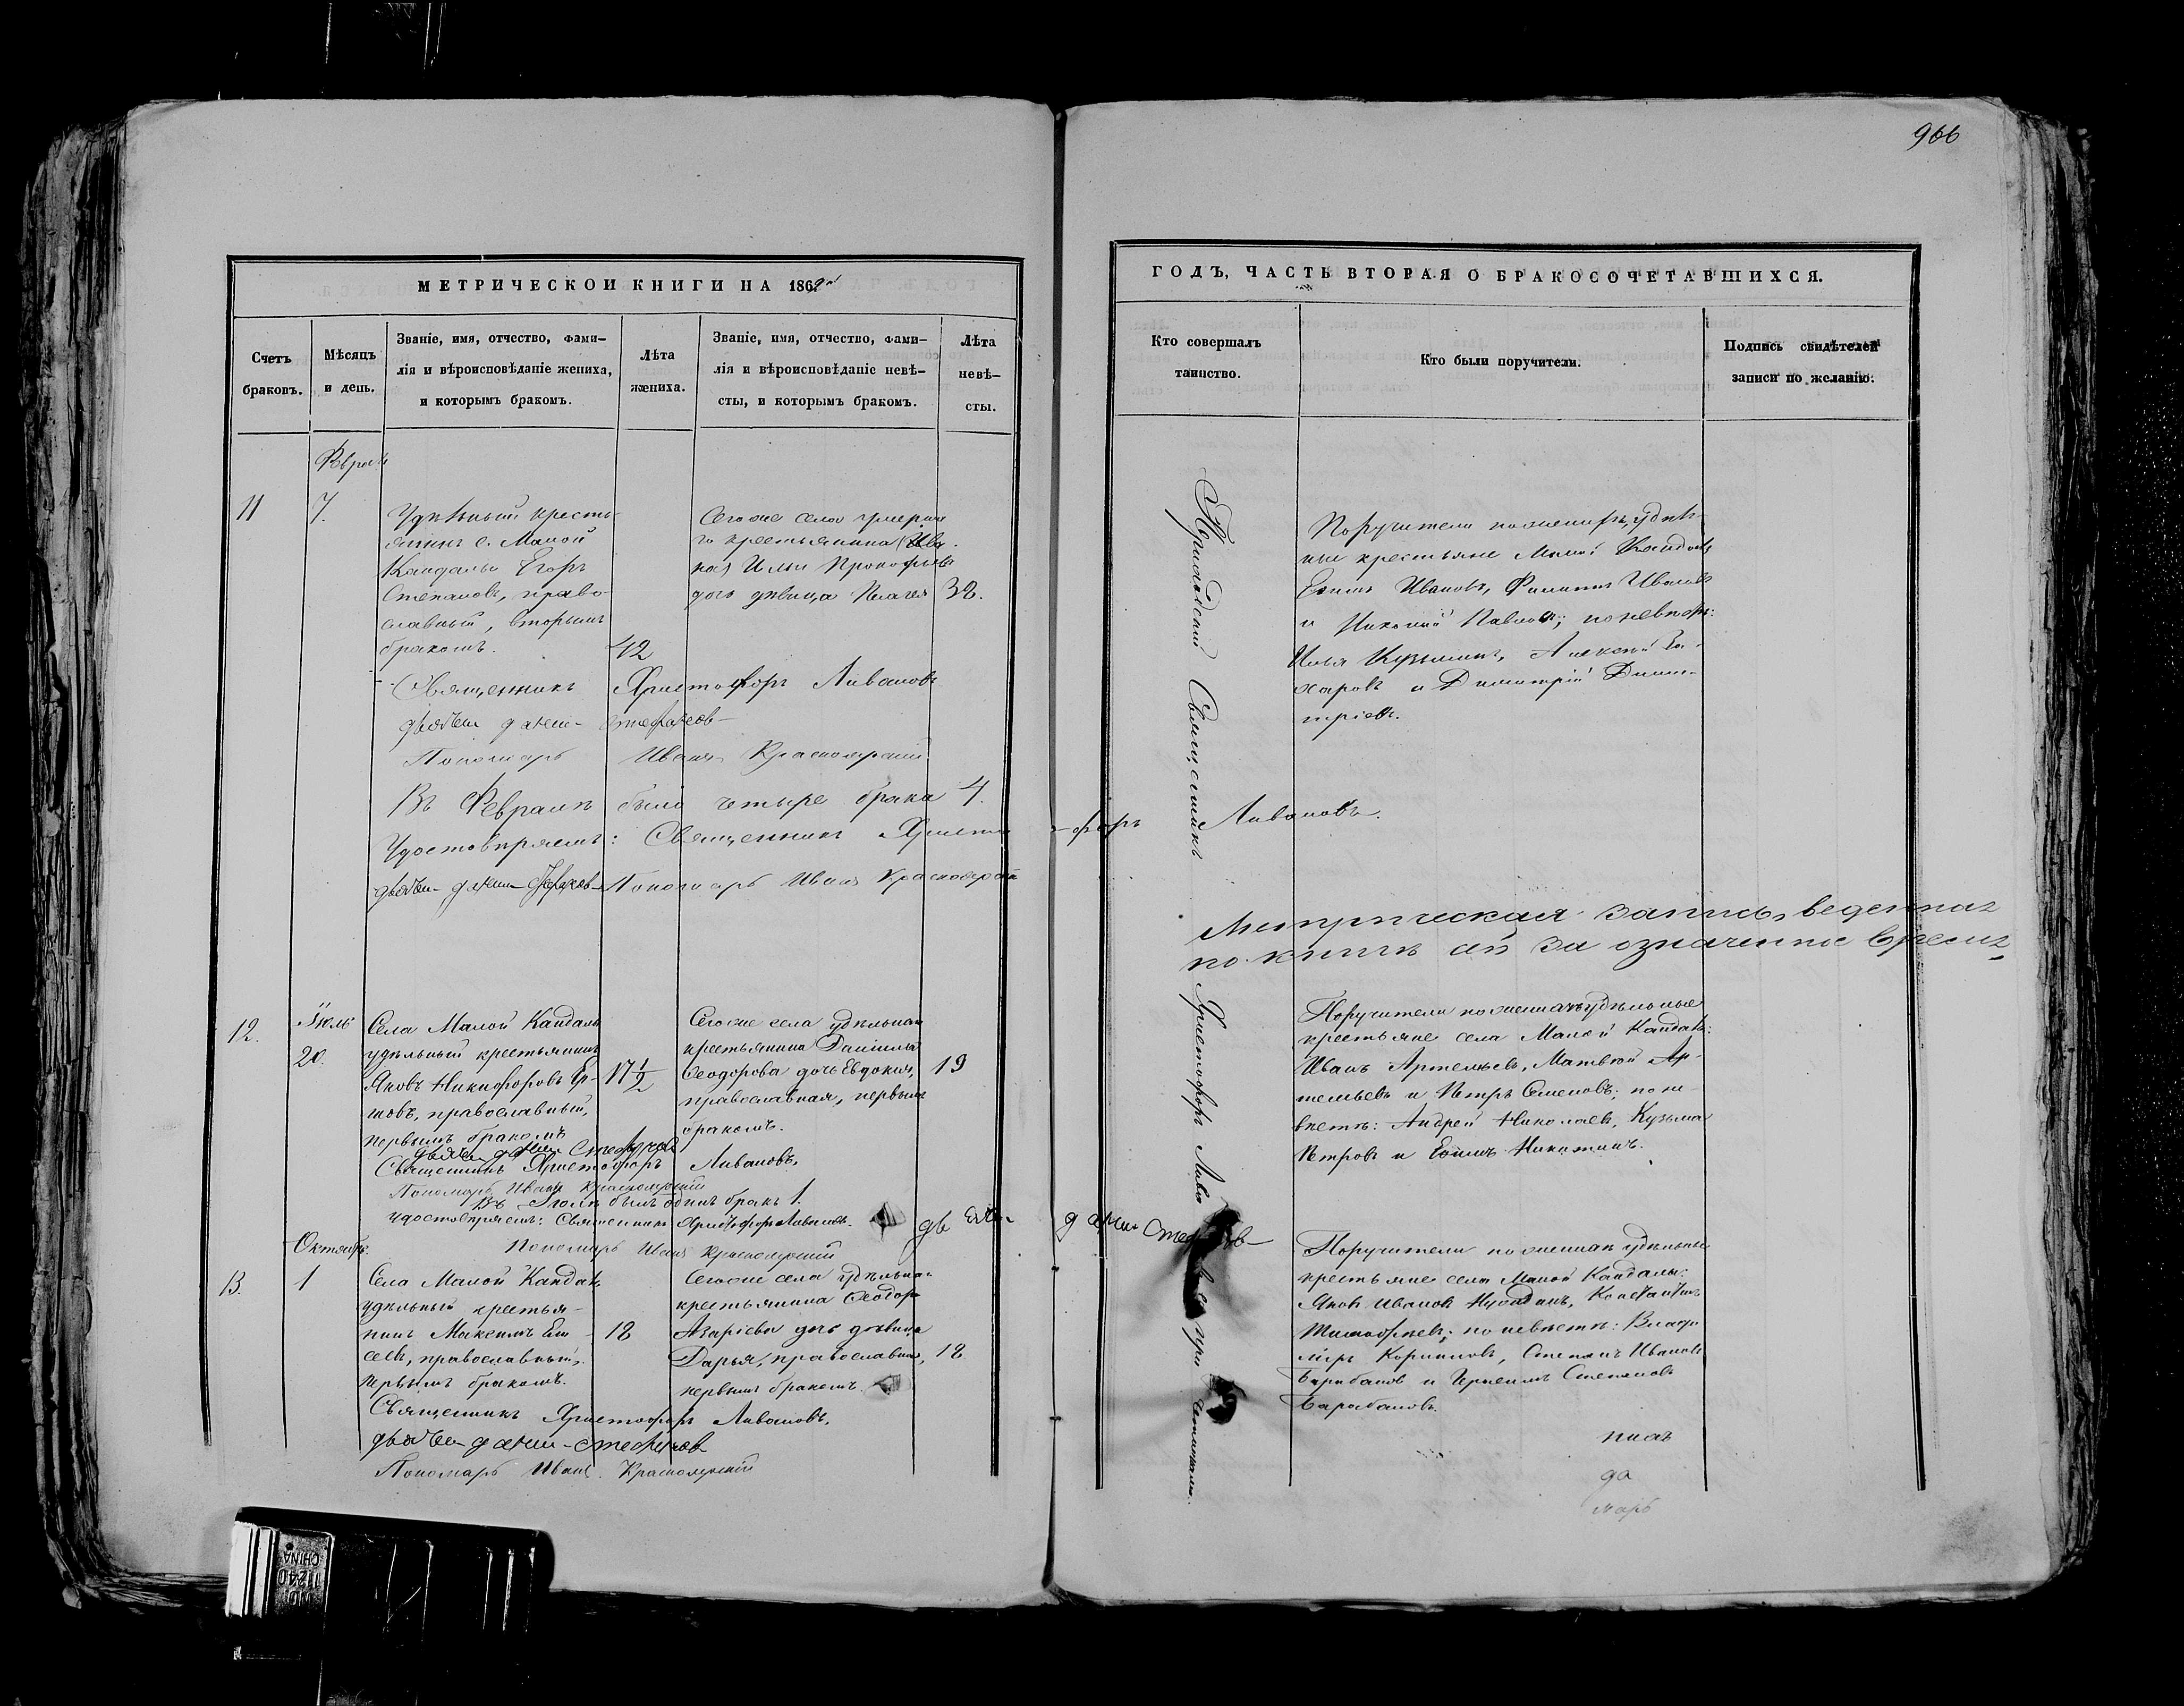 966
МЕТРИЧЕСКОЙ КНИГИ НА 1862й
Счетъ браковъ.
Мѣсяцъ и день.
Званіе, имя, отчество, фами-
лія и вѣроисповѣданіе жениха,
и которымъ бракомъ.
Лѣта жениха.
Званіе, имя, отчество, фами-
лія и вѣроисповѣданіе невѣ-
сты, и которымъ бракомъ.
Лѣта невѣ-
сты.
Февраль
11
7.
Удѣльный кресть-
янинъ с. Малой
Кандалы Егоръ
Степановъ, право-
славный, вторымъ
бракомъ.
42
Сегоже села умерша-
го крестьянина
Ильи Прокофьева
дочь дѣвица Пелагея
32.
Священникъ Христофоръ Ливановъ
дьячекъ Данилъ Стефановъ
Пономарь Иванъ Красноярскій
Въ Февралѣ было четыре брака 4.
Удостовѣряемъ: Священникъ Христо-
дьячекъ Данилъ Стефановъ Пономарь Иванъ Красноярскій
12.
Іюль
20.
Села Малой Кандалы
удѣльный крестьянинъ
Яковъ Никифоровъ Ер-
шовъ, православный,
первымъ бракомъ
17 1/2
Сегоже села удѣльнаго
крестьянина Даніила
Ѳеодорова дочь Евдокия,
православная, первымъ
бракомъ.
19
дьячекъ Данилъ Стефановъ
Священникъ Христофоръ Ливановъ.
Пономарь Иванъ Красноярскій
Въ Іюлѣ былъ одинъ бракъ 1.
Удостовѣряемъ: Священникъ Христофоръ Ливановъ.
Пономарь Иванъ Красноярскій
Октябрь.
13.
1
Села Малой Кандалы
удѣльный крестья-
нинъ Максимъ
православный,
первымъ бракомъ.
18
Сегоже села удѣльнаго
крестьянина Ѳеодора
Азаріева дочь дѣвица
Дарья, православная,
первымъ бракомъ.
18
Священникъ Христофоръ Ливановъ.
дьячекъ Данилъ Стефановъ
Пономарь Иванъ Красноярскій
ГОДЪ, ЧАСТЬ ВТОРАЯ О БРАКОСОЧЕТАВШИХСЯ.
Кто совершалъ
таинство.
Кто были поручители.
Подпись свидѣтелей
записи по желанію.
Приходскій Священникъ Христофоръ
Поручители по женихѣ, удѣль-
ные крестьяне Малой Кандалы
Ефимъ Ивановъ, Филиппъ Ивановъ
и Николай Павловъ; по невѣстѣ:
Илья Кузьминъ, Алексѣй За-
харовъ и Димитрій Димит-
ріевъ.
-форъ Ливановъ.
Метрическая запись, веденная
по книгѣ ей за означенное время
Поручители по женихѣ удѣльные
крестьяне села Малой Кандалы:
Иванъ Артемьевъ, Матвей Ар-
темьевъ и Петръ Семеновъ; по не-
вѣстѣ: Андрей Николаевъ, Кузьма
Петровъ и Ефимъ Никитинъ.
Данилъ Стефановъ
Поручители по женихѣ удѣльные
крестьяне села Малой Кандалы:
Яковъ Ивановъ Константинъ
Тимофеевъ; по невѣстѣ: Влади
миръ Корниловъ, Степанъ Ивановъ
Барабановъ и Степановъ
Барабановъ.
да
марь